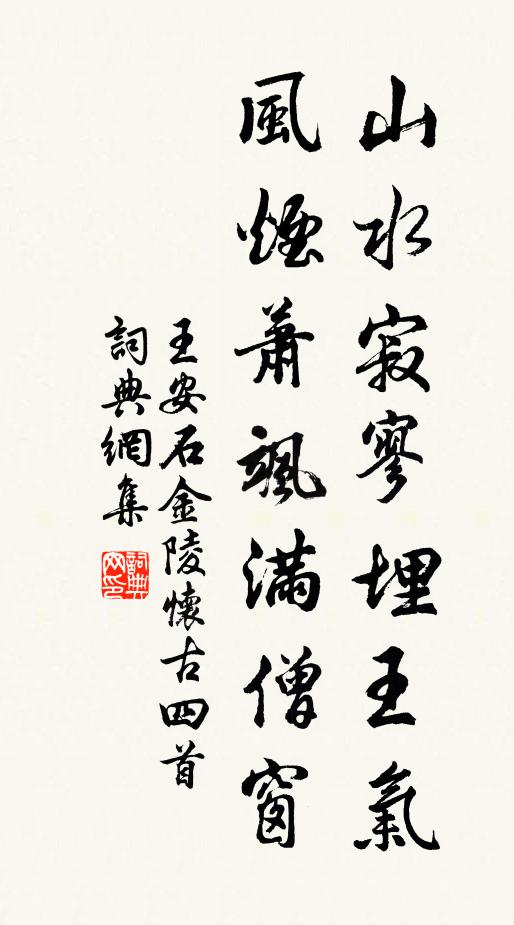 山水寂寥埋王氣
風煙蕭颯滿僧窗
王安石金陵懷古四首
詞典網集
詞典網印